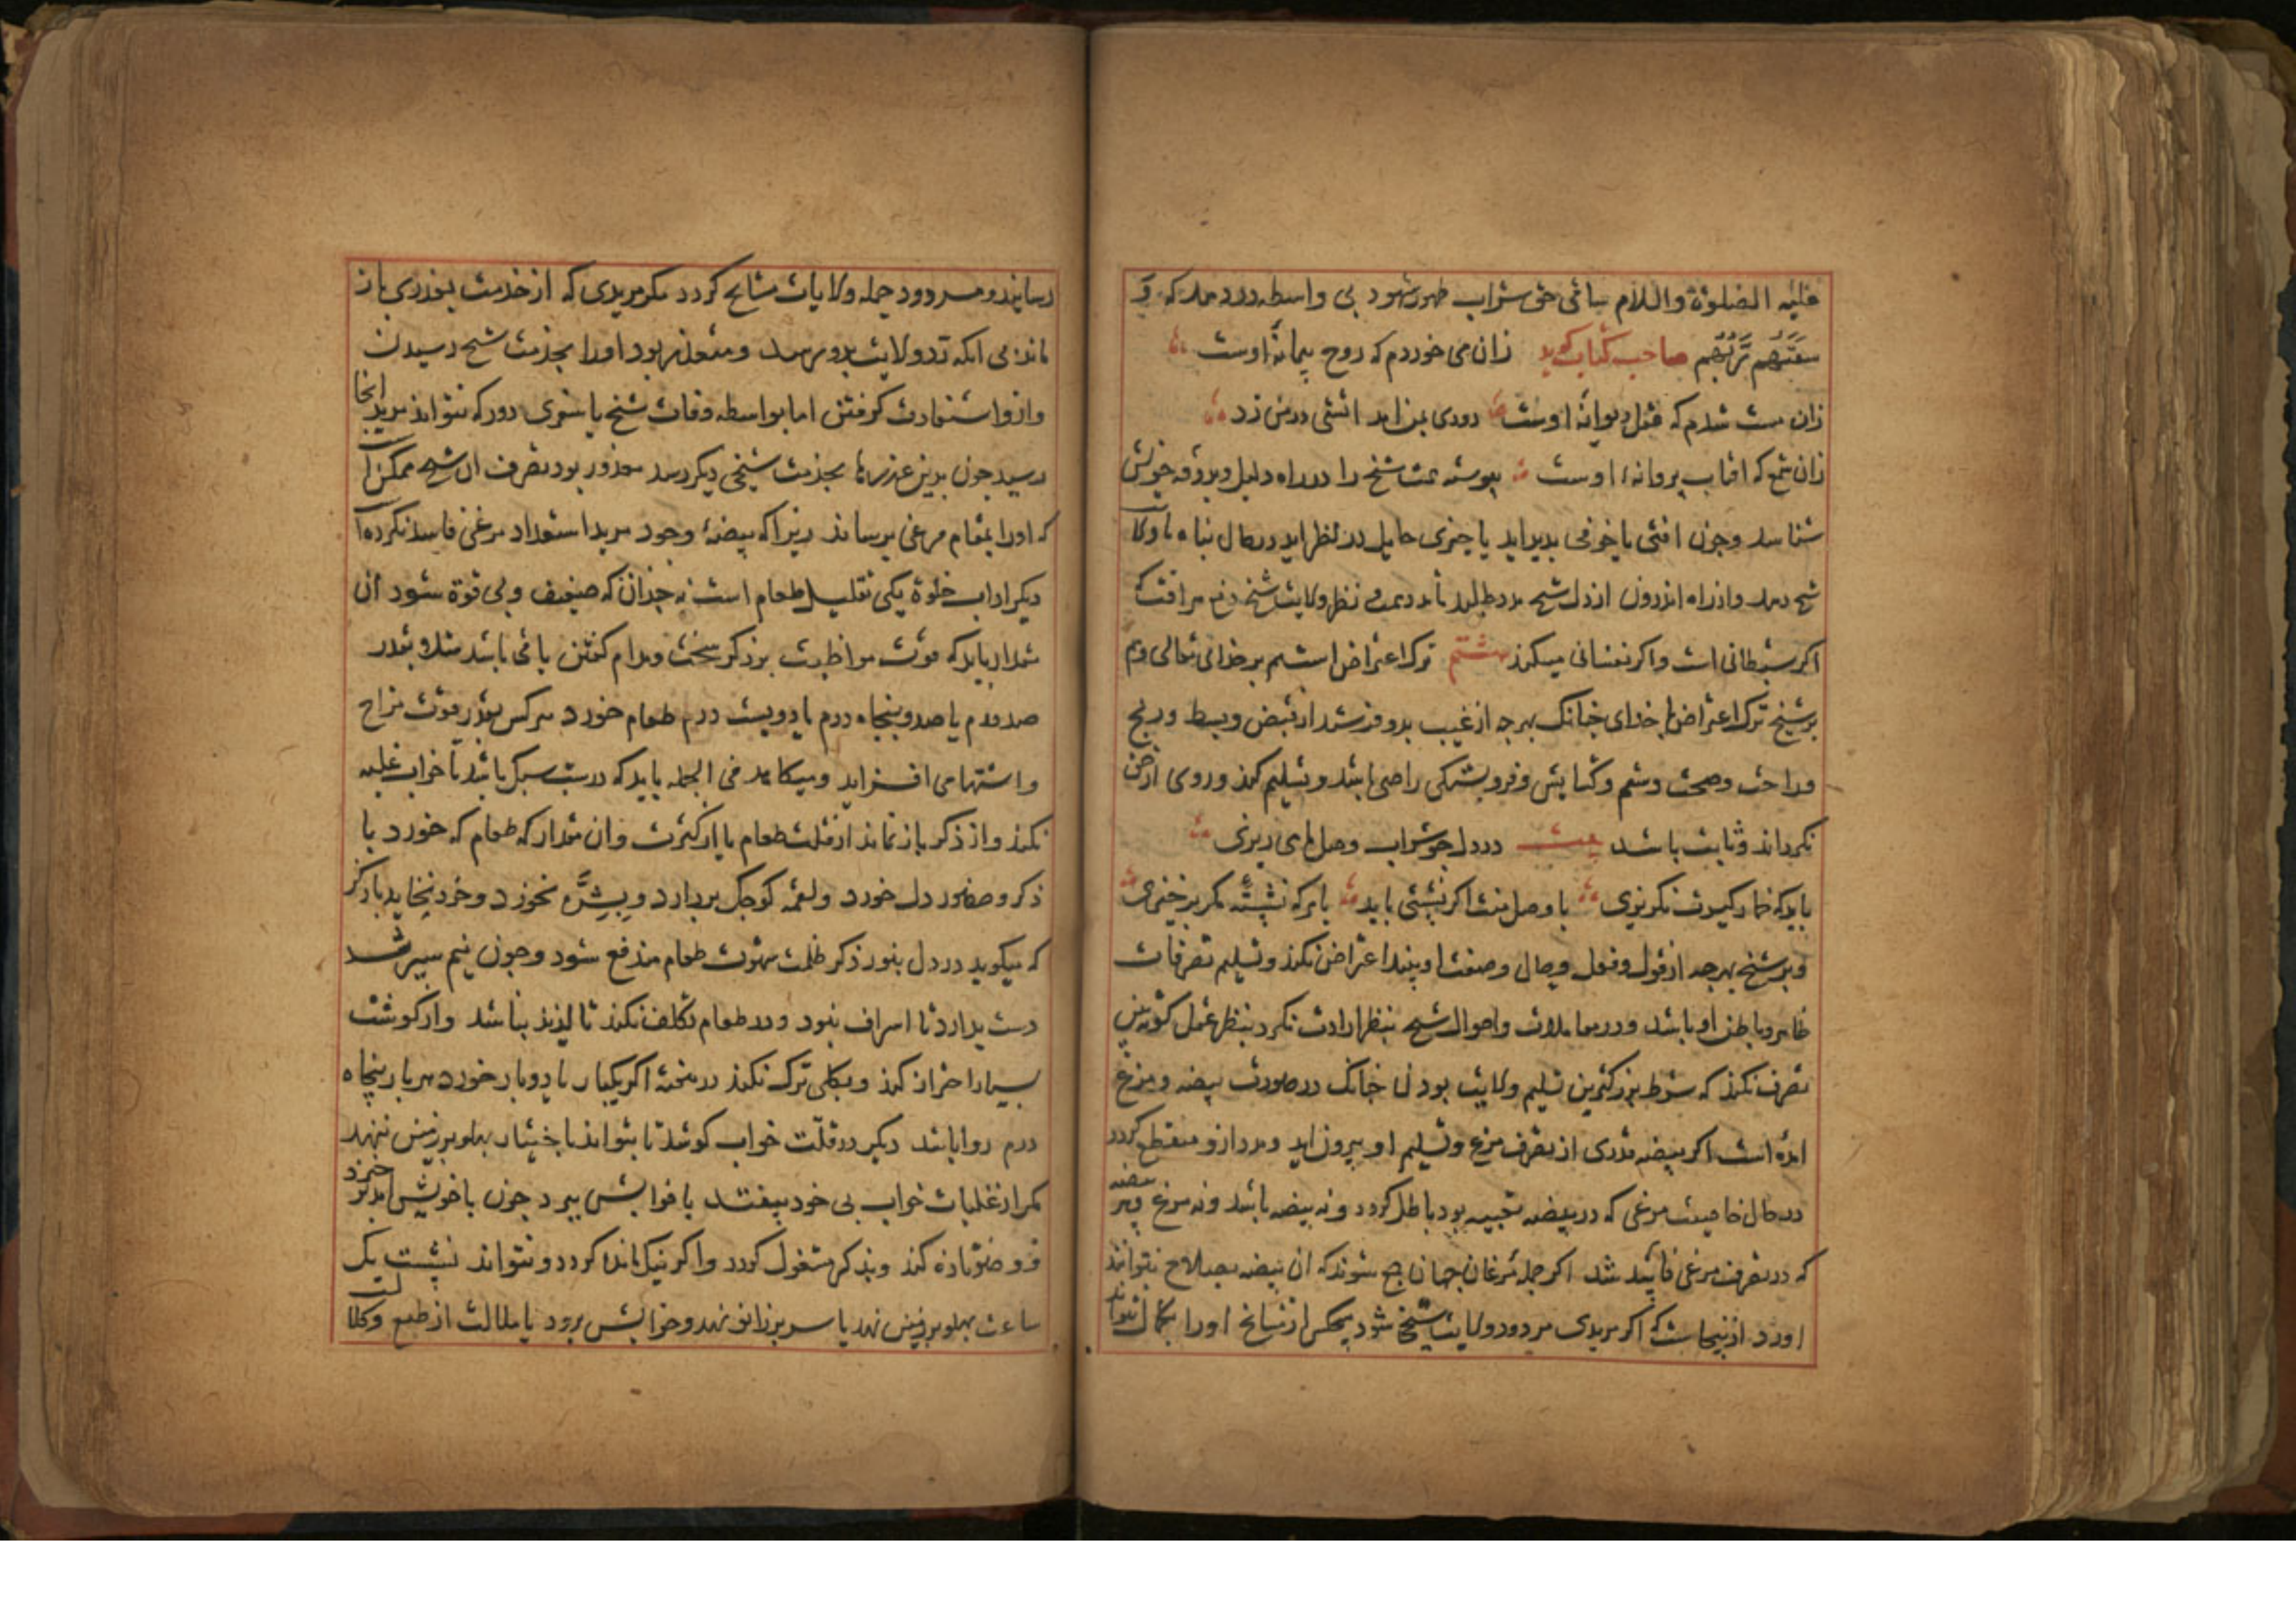 علیه الصلوة والسلام ساقی حق شراب طهور شهود بی واسطه در دهد که و
سقیهم ربهم صاحب کتاب کوید زان می خوردم که روح پیمانهٔ اوست
زان مست شدم که عقل دیوانهٔ اوست دودی بمن امد اتشی در من زد
زان شمع که افتاب پروانهٔ اوست پیوسته همت شیخ را در راه دلیل و بدرقه خویش
شناسد و چون افتی یا خوفی پدید اید یا چیزی هایل در نظر اید در حال پناه با ولایت
شیخ دهد و از راه اندرون از دل شیخ مدد طلبد تا مدد همت و نظر ولایت شیخ دفع هر افت که
اکر شیطانی است و اکر نفسانی میکند هشتم ترک اعتراض است هم بر خدای تعالی و هم
بر شیخ ترک اعتراض بر خدای چنانک هر چه از غیب بدو فرستد از قبض و بسط و رنج
و راحت و صحت و سقم و کشایش و فروبستکی راضی باشد و تسلیم کند و روی از حق
نکرداند و ثابت باشد بیت در دل چو شراب وصل ما می ریزی
باید که خمار کیرت نکریزی با وصل منت اکر نشستی باید با هر که نشسته مکر برخیزی
و بر شیخ بهر چه از قول و فعل و حال و صفت او بیند اعتراض نکند و تسلیم تصرفات
ظاهر و باطن او باشد و در معاملات و احوال شیخ بنظر ارادت نکرد بنظر عقل کوته بین
تصرف نکند که شرط بزرکترین تسلیم ولایت بودن چنانک در صورت بیضه و مرغ
امده است اکر بیضه قدری از تصرف مرغ و تسلیم او بیرون اید و مدد ازو منقطع کردد
در حال خاصیت مرغی که در بیضه تعبیه بود باطل کردد و نه بیضه باشد و نه مرغ و هر بیضه
که در تصرف مرغی فاسد شد اکر جمله مرغان جهان جمع شوند که ان بیضه بصلاح نتوانند
اورد ازینجاست که اکر مریدی مردود ولایت شیخی شود هیچکس از مشایخ او را بکمال نتواند
رسانیدو مردود جمله ولایات مشایخ کردد مکر مریدی که از خدمت بعذری باز
ماند بی انکه رد ولایت بدو رسد و متعذر بود او را بخدمت شیخ رسیدن
و ازو استفادت کرفتن اما بواسطه وفات شیخ یا سفری دور که نتواند مرید انجا
رسید چون بدین عذرها بخدمت شیخی دیکر رسد معذور بود تصرف ان شیخ ممکن است
که او را بمقام مرغی برساند زیرا که بیضهٔ وجود مرید استعداد مرغی فاسد نکرده است
دیکر اداب خلوة یکی تقلیل طعام است نه چندان که ضعیف و بی قوة شود ان
مقدار باید که قوت مواظبت بر ذکر سخت و مدام کفتن باقی باشد مثلا و بقدر
صد درم یا صد و پنجاه درم یا دویست درم طعام خورد هر کس بقدر قوت مزاج
و اشتها می افزاید و میکاهد فی الجمله باید که در شب سبک باشد تا خواب غلبه
نکند و از ذکر باز نماند از قلت طعام یا از کثرت و ان مقدار که طعام که خورد با
ذکر و حضور دل خورد و لقمه کوچک بردارد و بشره نخورد و خرد بخاید با ذکر
که میکوید در دل بنور ذکر ظلمت شهوت طعام مندفع شود و چون نیم سیر شد
دست بدارد تا اسراف نبود و در طعام تکلف نکند تا لذیذ نباشد و از کوشت
بسیار احتراز کند و بکلی ترک نکند در هفتهٔ اکر یکبار یا دو بار خورد هر بار پنجاه
درم روا باشد دیکر در قلت خواب کوشد تا بتواند باختیار پهلو بر زمین ننهد
مکر از غلبات خواب بی خود بیفتد یا خوابش ببرد چون با خویش اید برخیزد
و وضو تازه کند و بذکر مشغول کردد و اکر نیک مانده کردد و نتواند نشست یک
ساعت پهلو بر زمین نهد یا سر بر زانو نهد و خوابش برود یا ملالت از طبع و کلالت